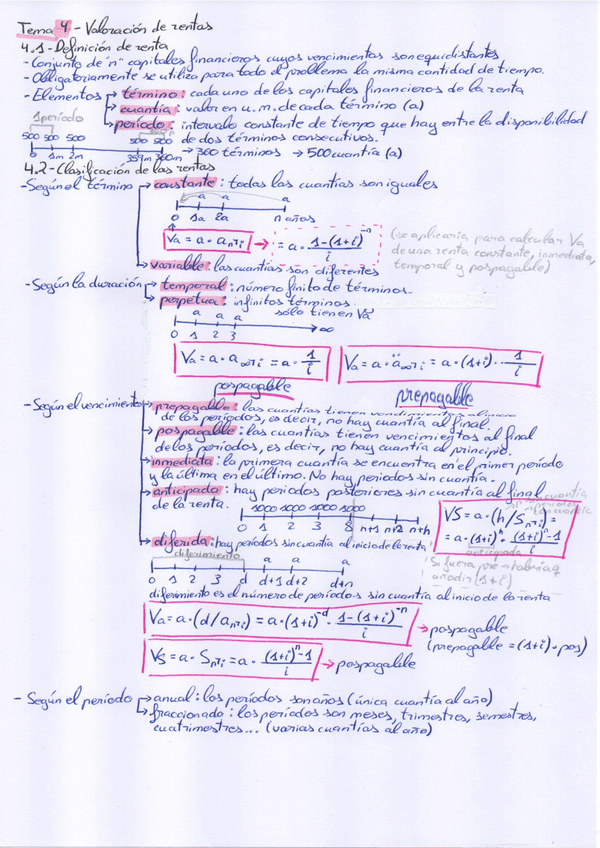 Tema 4 - Valoración de rentas
4.1 - Definición de renta
- Conjunto de "n" capitales financieros cuyos vencimientos son equidistantes
- Obligatoriamente se utiliza para todo el problema la misma cantidad de tiempo.
- Elementos → término: cada uno de los capitales financieros de la renta
→ cuantía: valor en u.m. de cada término (a)
→ período: intervalo constante de tiempo que hay entre la disponibilidad
de dos términos consecutivos.
1período
500 500 500 500 500
0 1m 2m 359m 360m → 300 términos → 500 cuantía (a)
4.2 - Clasificación de las rentas
- Según el término → constante: todas las cuantías son iguales
a a a
0 1a 2a n años
Va = a · an⌉i → = a · 1-(1+i)^-n / i
(se aplicaría para calcular Va
de una renta constante, inmediata,
temporal y pospagable)
→ variable: las cuantías son diferentes
- Según la duración → temporal: número finito de términos.
→ perpetua: infinitos términos
sólo tienen Va
a a a
0 1 2 3 ∞
Va = a · a∞⌉i = a · 1/i
Va = a · ä∞⌉i = a · (1+i) · 1/i
pospagable prepagable
- Según el vencimiento → prepagable: las cuantías tienen vencimiento al inicio
de los períodos, es decir, no hay cuantía al final.
→ pospagable: las cuantías tienen vencimientos al final
de los períodos, es decir, no hay cuantía al principio.
→ inmediata: la primera cuantía se encuentra en el primer período
y la última en el último. No hay periodos sin cuantía.
→ anticipada: hay periodos posteriores sin cuantía al final
de la renta.
sin cuantía
1000 1000 1000 1000
0 1 2 3 n+1 n+2 n+h
VS = a · (h/Sn⌉i) =
= a · (1+i)^h · (1+i)^n - 1 / i
anticipada
Si fuera pre → habría q
añadir (1+i)
→ diferida: hay períodos sin cuantía al inicio de la renta
diferimiento a a a
0 1 2 3 d d+1 d+2 d+n
diferimiento es el número de períodos sin cuantía al inicio de la renta
Va = a · (d/an⌉i) = a · (1+i)^-d · 1-(1+i)^-n / i → pospagable
(prepagable = (1+i) · pos)
VS = a · Sn⌉i = a · (1+i)^n - 1 / i → pospagable
- Según el período → anual: los períodos son años (única cuantía al año)
→ fraccionado: los períodos son meses, trimestres, semestres,
cuatrimestres... (varias cuantías al año)